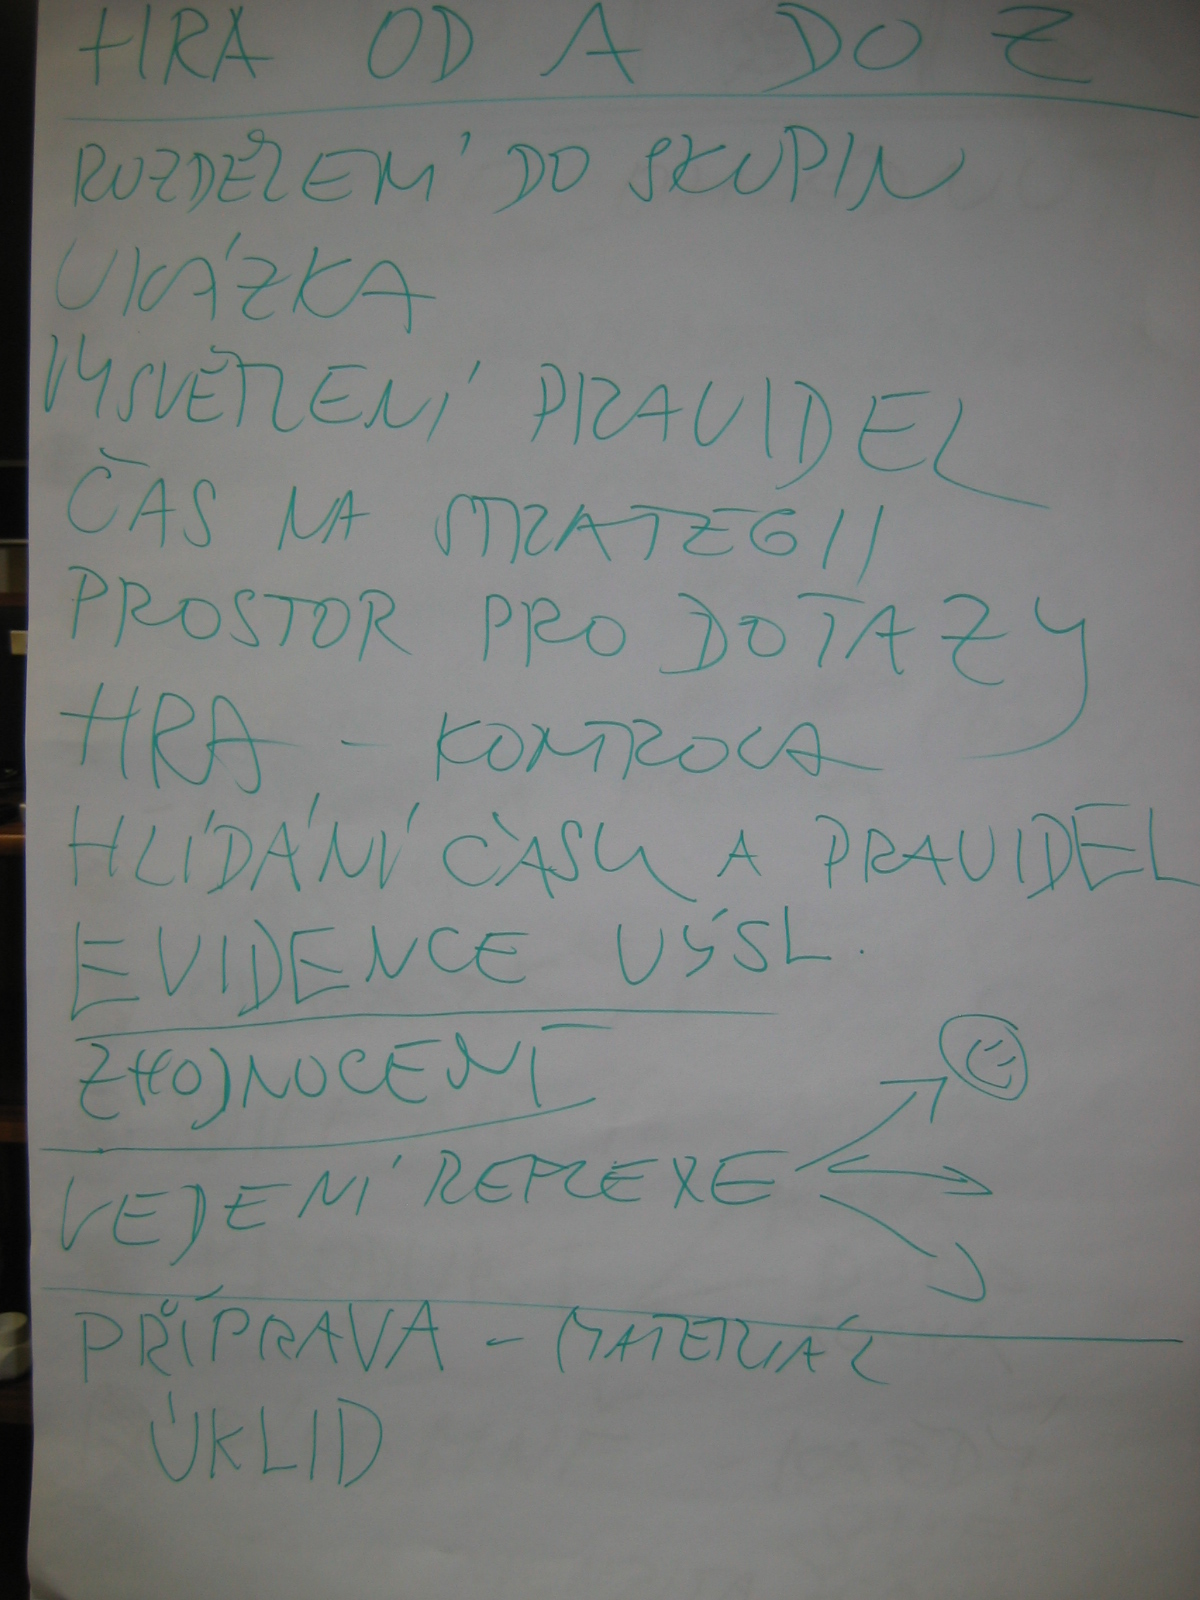 HRA OD A DO Z
ROZDĚLENÍ DO SKUPIN
UKÁZKA
VYSVĚTLENÍ PRAVIDEL
ČAS NA STRATEGII
PROSTOR PRO DOTAZY
HRA - KONTROLA
HLÍDÁNÍ ČASU A PRAVIDEL
EVIDENCE VÝSL.
Z(HO)NOCENÍ
VEDENÍ REFLEXE
PŘÍPRAVA - MATERIÁL
ÚKLID